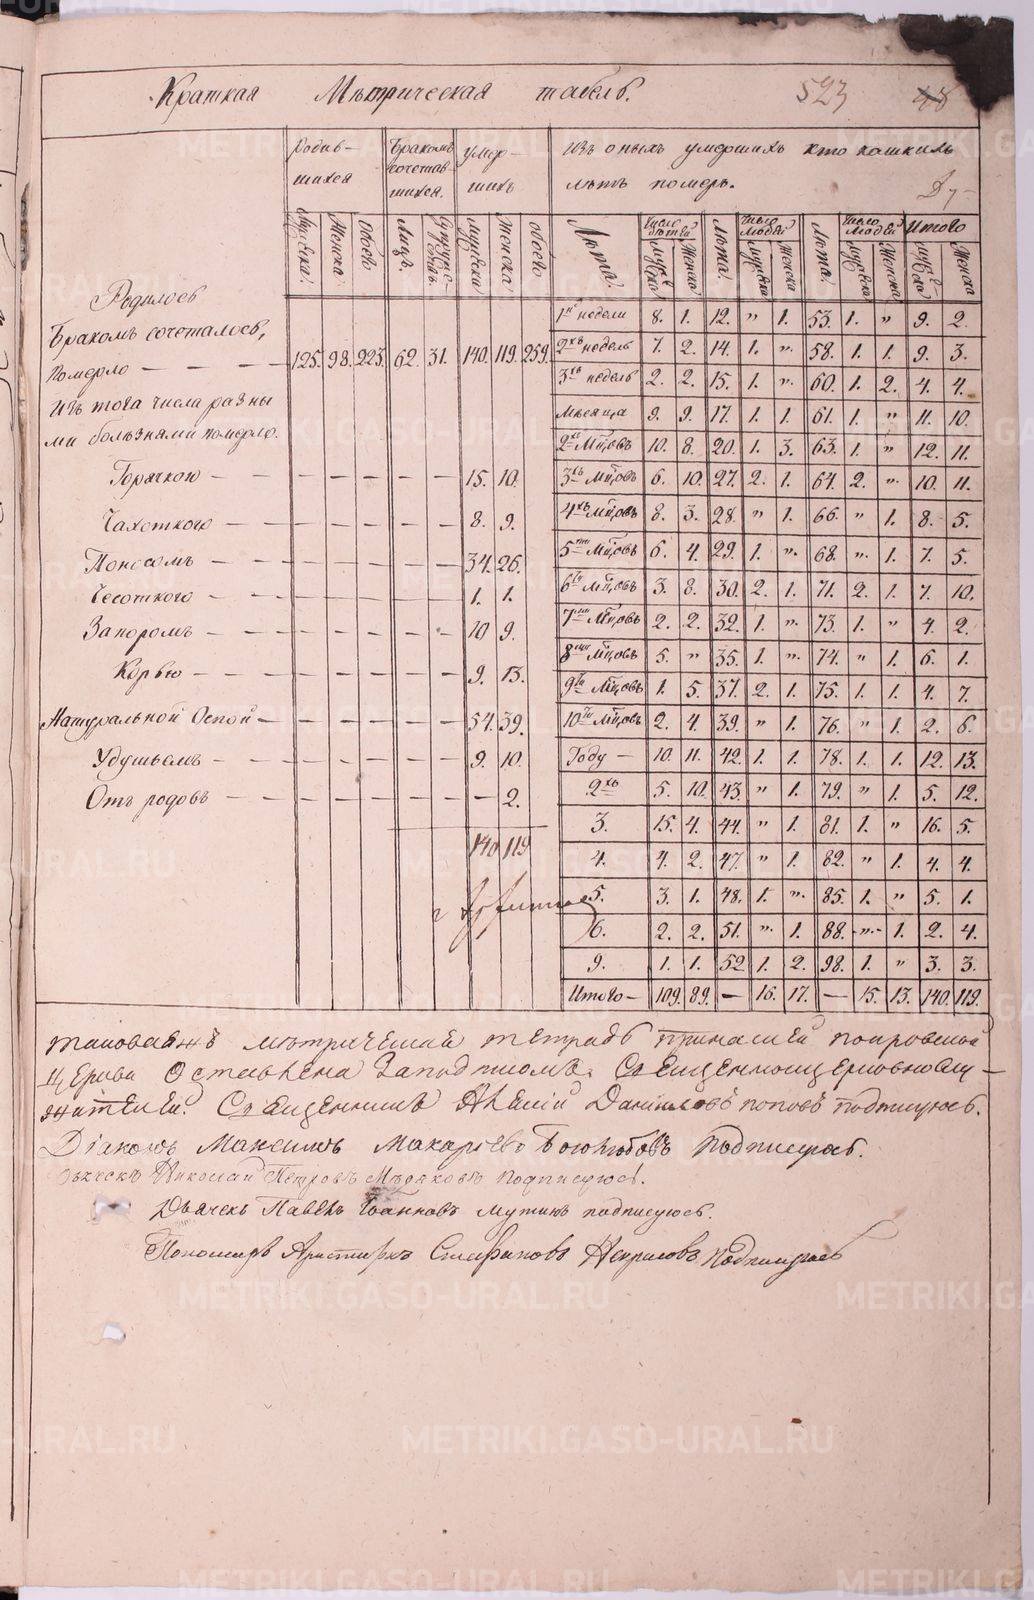 Краткая Мѣтрическая табель. 523 48
Родив-шихся Бракомъ сочетав-шихся. Умер-шихъ Изъ оныхъ умершихъ кто коликихъ
лѣтъ померъ.
Мужеска. Женска Обоего Лицъ. Супружествъ. Мужеска Женска обоего. Число дѣтей Лѣта. Число людей Лѣта. Число людей Итого
Мужеска Женска Мужеска Женска Мужеска Женска Мужеска Женска
Родилось
Бракомъ сочеталось,
Померло — — — — 125. 98. 223. 62. 31. 140. 119. 259.
Изъ того числа разны
ми болѣзнями померло.
Горячкою — — — — — — — 15. 10.
Чахоткого — — — — — — 8. 9.
Поносомъ — — — — — — 34. 26.
Чесоткого — — — — — — 1. 1.
Запоромъ — — — — — — — 10 9.
Корью — — — — — — — 9. 13.
Натуральной Оспой — — — — — — 54. 39.
Удушьемъ — — — — — — — 9. 10.
Отъ родовъ — — — — — — — — 2.
140 119
1й недели 8. 1. 12. " 1. 53. 1. " 9. 2.
2хъ недель 7. 2. 14. 1. " 58. 1. 1. 9. 3.
3хъ недель 2. 2. 15. 1. " 60. 1. 2. 4. 4.
Мѣсяца 9. 9. 17. 1. 1. 61. 1. " 11. 10.
2хъ Мцовъ 10. 8. 20. 1. 3. 63. 1. " 12. 11.
3хъ Мцовъ 6. 10. 27. 2. 1. 64. 2. " 10. 11.
4хъ Мцовъ 8. 3. 28. " 1. 66. " 1. 8. 5.
5ти Мцовъ 6. 4. 29. 1. " 68. " 1. 7. 5.
6ти Мцовъ 3. 8. 30. 2. 1. 71. 2. 1. 7. 10.
7ми Мцовъ 2. 2. 32. 1. " 73. 1. " 4. 2.
8ми Мцовъ 5. " 35. 1. " 74. " 1. 6. 1.
9ти Мцовъ 1. 5. 37. 2. 1. 75. 1. 1. 4. 7.
10ти Мцовъ 2. 4. 39. " 1. 76. " 1. 2. 6.
Году — 10. 11. 42. 1. 1. 78. 1. 1. 12. 13.
2хъ 5. 10. 43. " 1. 79. " 1. 5. 12.
3. 15. 4. 44. " 1. 81. 1. " 16. 5.
4. 4. 2. 47. " 1. 82. " 1. 4. 4.
5. 3. 1. 48. 1. " 85. 1. " 5. 1.
6. 2. 2. 51. " 1. 88. " 1. 2. 4.
9. 1. 1. 52 1. 2. 98. 1. " 3. 3.
Итого — 109. 89. — 16. 17. — 15. 13. 140. 119.
таковаяжъ мѣтричиская тетрадь принашей покровской
Церкви Оставлена Заподписомъ Священноцерковнослу-
жителей. Священникъ Алексій Даніиловъ поповъ подписуюсь.
Діаконъ Максимъ Макаріевъ Боголюбовъ Подписуюсь.
Николай Петровъ подписуюсь.
Дьячекъ Павелъ Іоанновъ Мутинъ подписуюсь.
Пономарь Аристархъ Стефановъ Некрасовъ Подписуюсь
METRIKI.GASO-URAL.RU